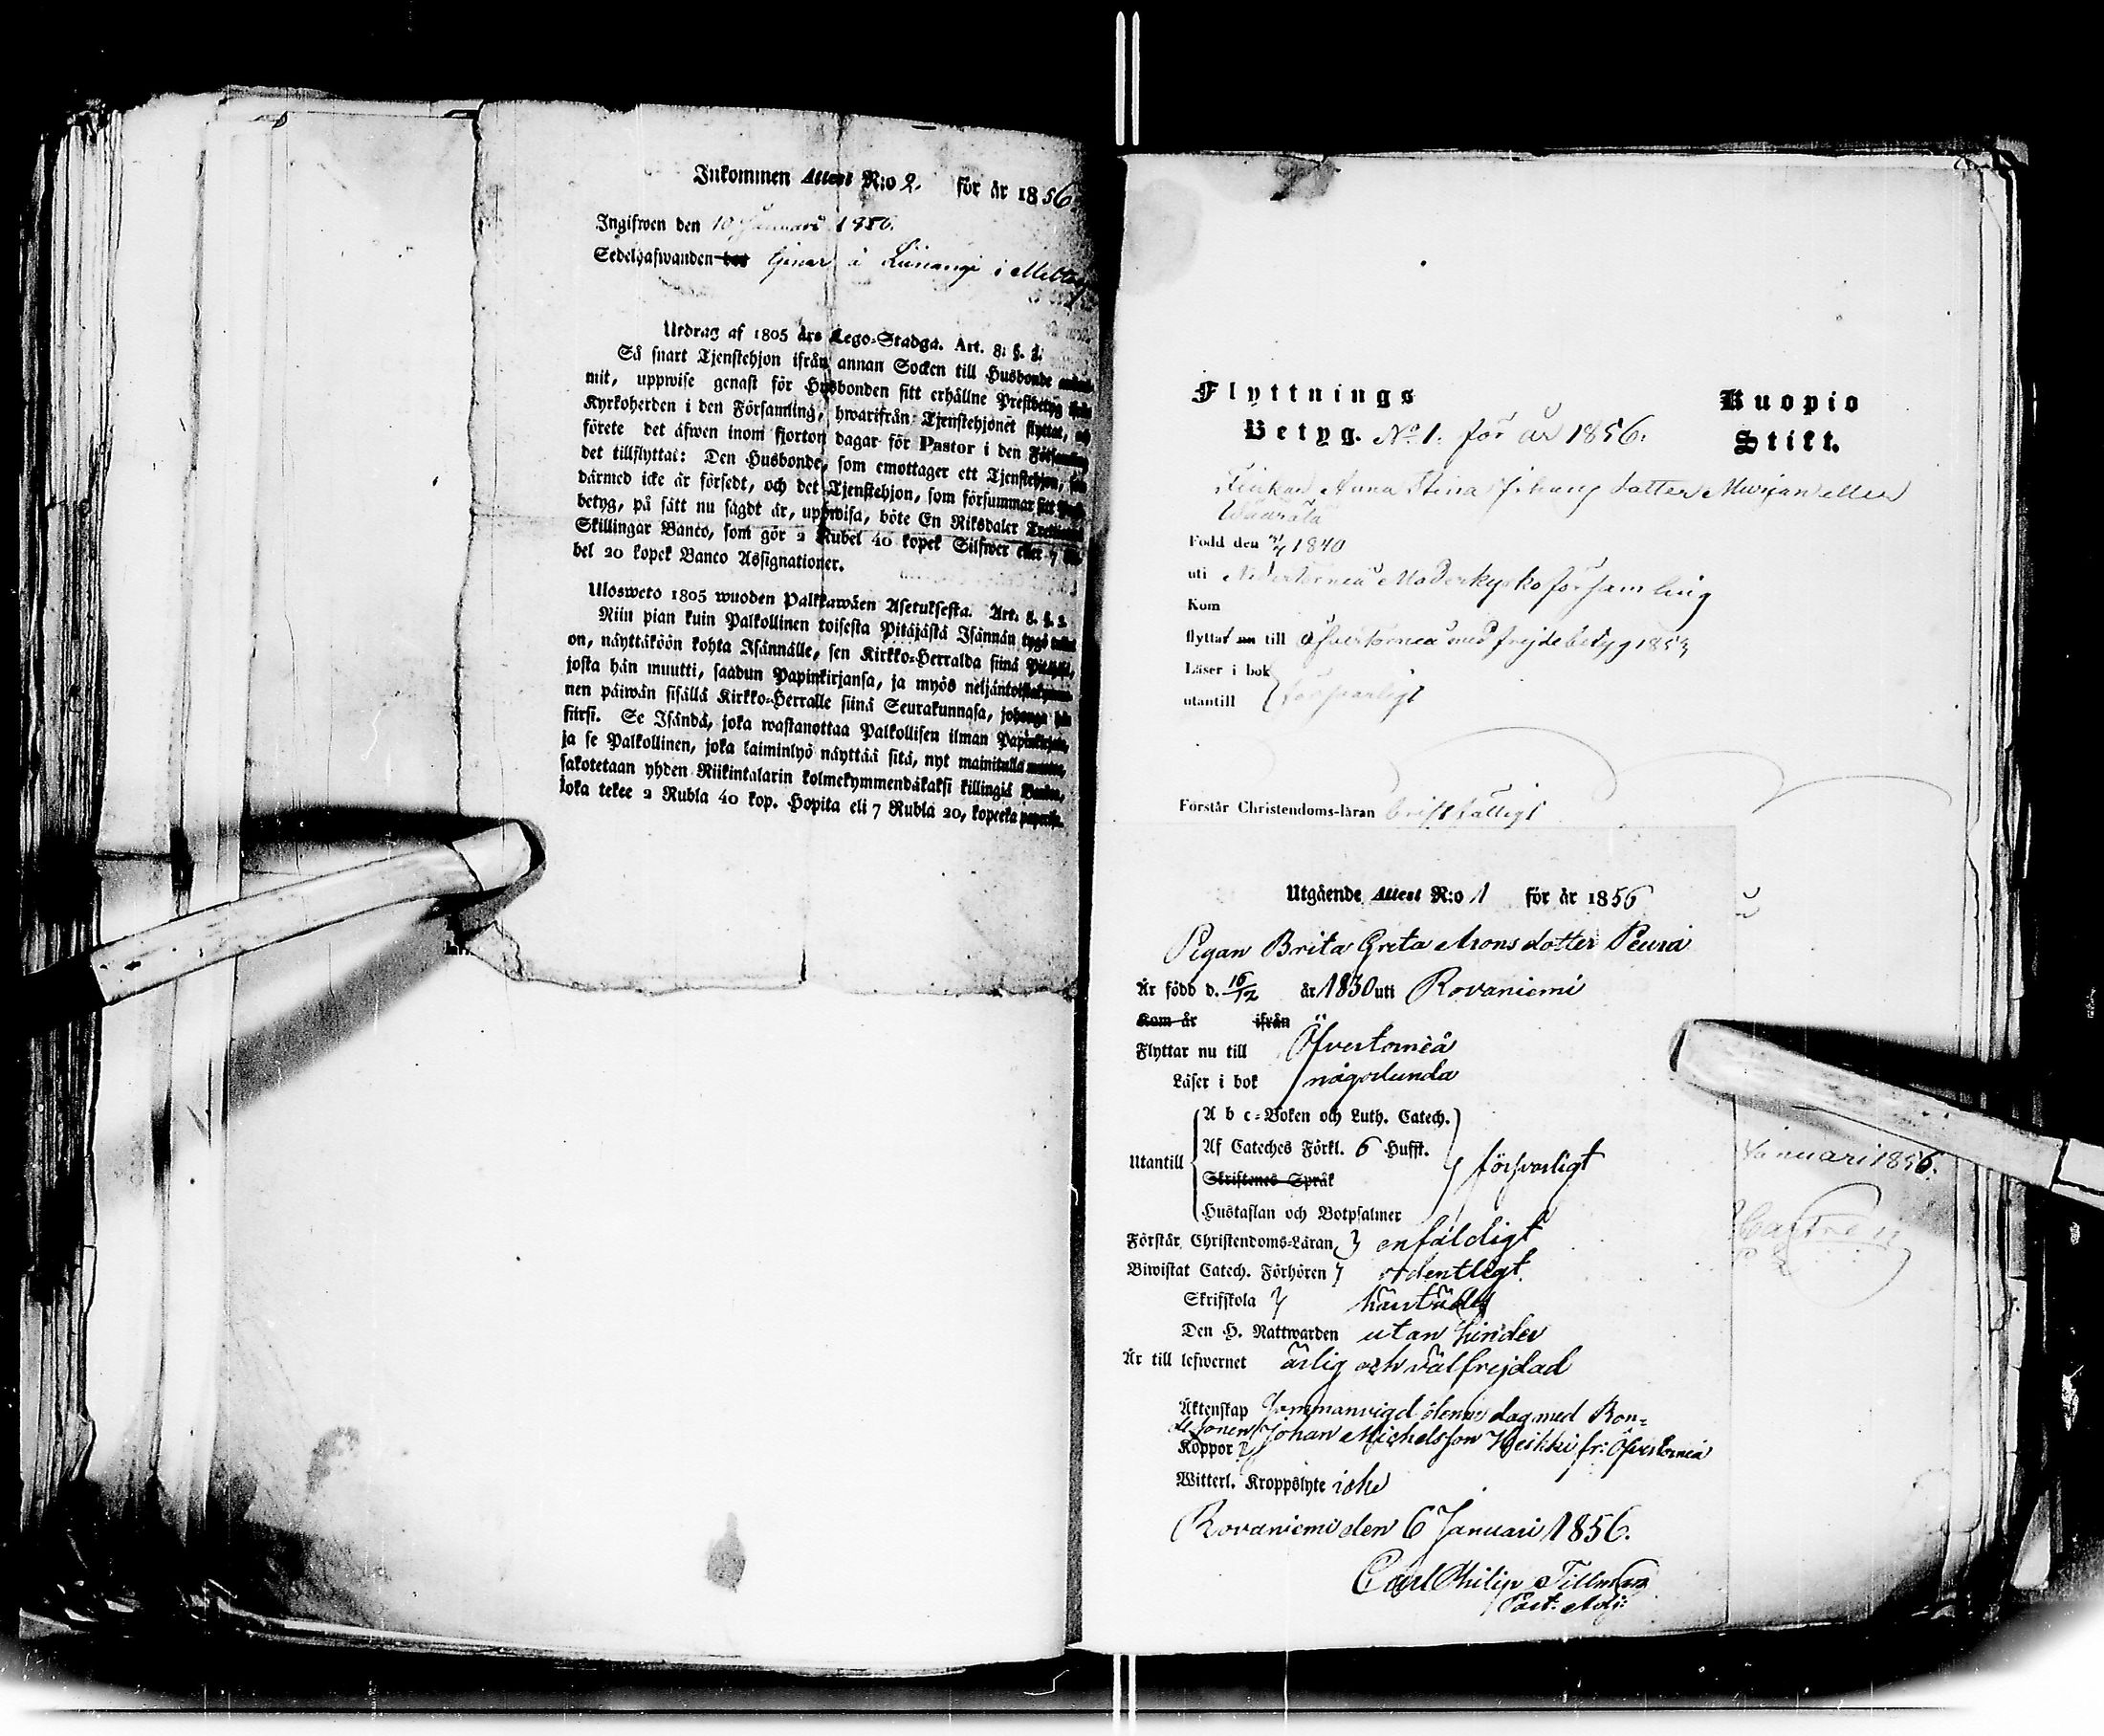 Inkommen Attest N:o 2. för år 1856
Ingifwen den 10 Januari 1856.
Sedelhafwanden bor tjenar å i
Utdrag af 1805 års Lego-Stadga. Art. 8: §. 2.
Så snart Tjenstehjon ifrån annan Socken till Husbonde
mit, uppwise genast för Husbonden sitt erhållne Prestbetyg
Kyrkoherden i den Församling, hwarifrån Tjenstehjonet flyttat, och
förete det äfwen inom fjorton dagar för Pastor i den Församling
det tillflyttat: Den Husbonde, som emottager ett Tjenstehjon, som
därmed icke är försedt, och det Tjenstehjon, som försummar sitt
betyg, på sätt nu sagdt är, uppwisa, böte En Riksdaler
Skillingar Banco, som gör 2 Rubel 40 kopek Silfwer eller 7
bel 20 kopek Banco Assignationer.
Ulosweto 1805 wuoden Palkkawäen Asetuksesta. Art. 8. §. 2.
Niin pian kuin Palkollinen toisesta Pitäjästä Isännän tygö
on, näyttäköön kohta Isännälle, sen Kirkko-Herralda siinä
josta hän muutti, saadun Papinkirjansa, ja myös
nen päiwän sisällä Kirkko-Herralle siinä Seurakunnasa, johonga hän
siirsi. Se Isändä, joka wastanottaa Palkollisen ilman
ja se Palkollinen, joka laiminlyö näyttää sitä, nyt mainitulla
sakotetaan yhden Riikintalarin kolmekymmendäkaksi killingiä
joka tekee 2 Rubla 40 kop. Hopita eli 7 Rubla 20, kopeeka
Flyttnings
Betyg. No 1. för år 1856.
Kuopio
Stift.
Flickan Anna Stina Johans dotter eller
Född den 1840
uti Nedertorneå Moderkyrko församling
Kom
flyttat nu till Öfvertorneå med frejdebetyg
Läser i bok
utantill försvarligt
Förstår Christendoms-läran
Utgående Attest N:o 1 för år 1856
Pigan Brita Greta Aronsdotter Peura
Är född d. 16/12 år 1830 uti Rovaniemi
Kom år ifrån
Flyttar nu till Öfvertorneå
Läser i bok någorlunda
A b c-Boken och Luth. Catech.
Af Cateches Förkl. 6 Hufst.
Utantill försvarligt
Skriftenes Språk
Hustaflan och Botpsalmer
Förstår Christendoms-Läran enfäldigt
Biwistat Catech. Förhören ordentligt
Skrifskola
Den H. Nattwarden utan hinder
Är till lefwernet ärlig och välfrejdad
Äktenskap Sammanvigd denna dag med Bon-
desonen Johan Michelsson Heikki fr: Öfvertorneå
Koppor
Witterl. Kroppslyte icke
Rovaniemi den 6 Januari 1856.
Carl Philip Tillman
Past: Adj:
Januari 1856.
Castrén